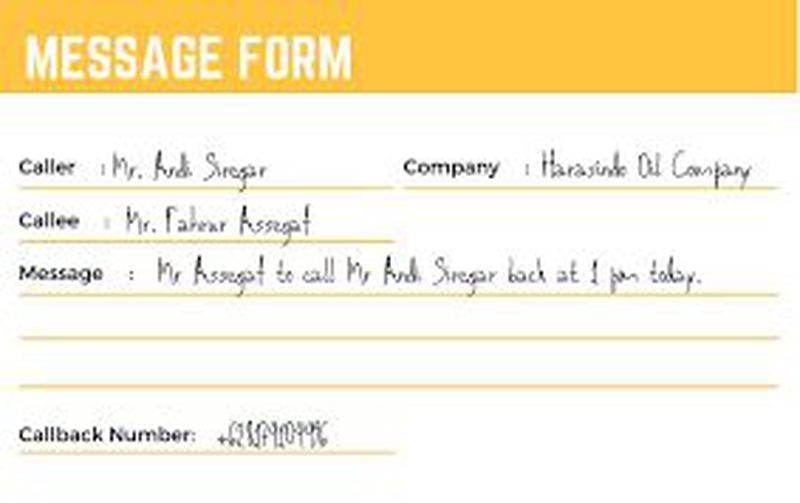 MESSAGE FORM
Caller : Mr. Andi Siregar Company : Harasindo Oil Company
Callee : Mr. Fahrur Assegaf
Message : Mr Assegaf to call Mr Andi Siregar back at 1 pm today.
Callback Number: